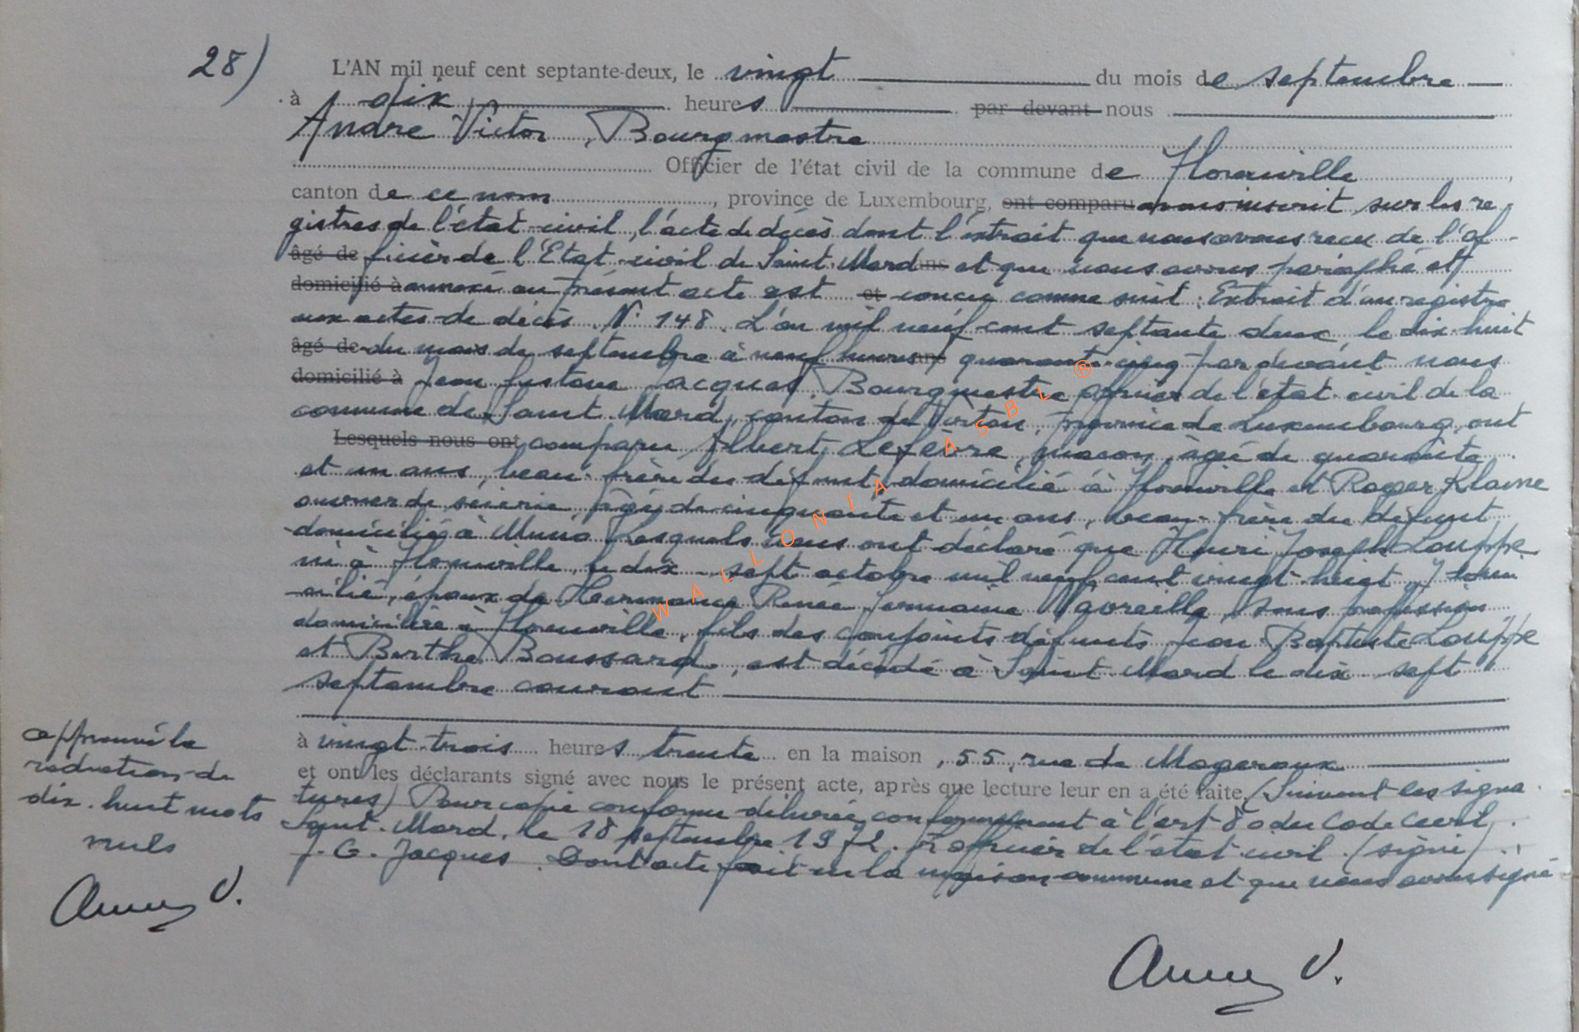 28)
L'AN mil neuf cent septante-deux, le vingt du mois de septembre
à dix heures par devant nous
André Victor, Bourgmestre
Officier de l'état civil de la commune de Florenville,
canton de ce nom, province de Luxembourg, ont comparu avons inscrit sur les re
gistres de l'état-civil, l'acte de décès dont l'extrait que nous avons recu de l'of-
âgé de ficier de l'Etat-civil de Saint-Mard ans et que nous avons paraphé et
domicilié à annexé au présent acte est et concu comme suit : Extrait d'un registre
aux actes de décès. N° 148. L'an mil neuf cent septante deux, le dix-huit
âgé de du mois de septembre à neuf heures ans quarante-cinq par devant nous
domicilié à Jean Gustave Jacques, Bourgmestre officier de l'état civil de la
commune de Saint-Mard, canton de Virton, province de Luxembourg, ont
Lesquels nous ont comparu Albert Lefèvre, maçon, âgé de quarante
et un ans, beau-frère du défunt, domicilié à Florenville et Roger Klaine
ouvrier de scierie, âgé de cinquante et un ans, beau-frère du défunt
domicilié à Muno. Lesquels nous ont déclaré que Henri Joseph Louppe
né à Florenville, le dix-sept octobre mil neuf cent vingt-huit, y domi
cilié, époux de Hermance Renée Germaine, sans profession
domiciliée à Florenville, fils des conjoints défunts Jean Baptiste Louppe
et Berthe Boussard, est décédé à Saint-Mard le dix-sept
septembre courant
à vingt-trois heures trente en la maison, 55, rue de Mageroux
et ont les déclarants signé avec nous le présent acte, après que lecture leur en a été faite. (Suivent les signa
tures) Pour copie conforme délivrée conformément à l'art 80 du Code Civil.
Saint-Mard, le 18 septembre 1972. L'officier de l'état civil. (signé)
J. G. Jacques. Dont acte fait en la maison communale et que nous avons signé
approuvé la
radiation de
dix-huit mots
nuls
V.
V.
WALLONIA ASBL ®